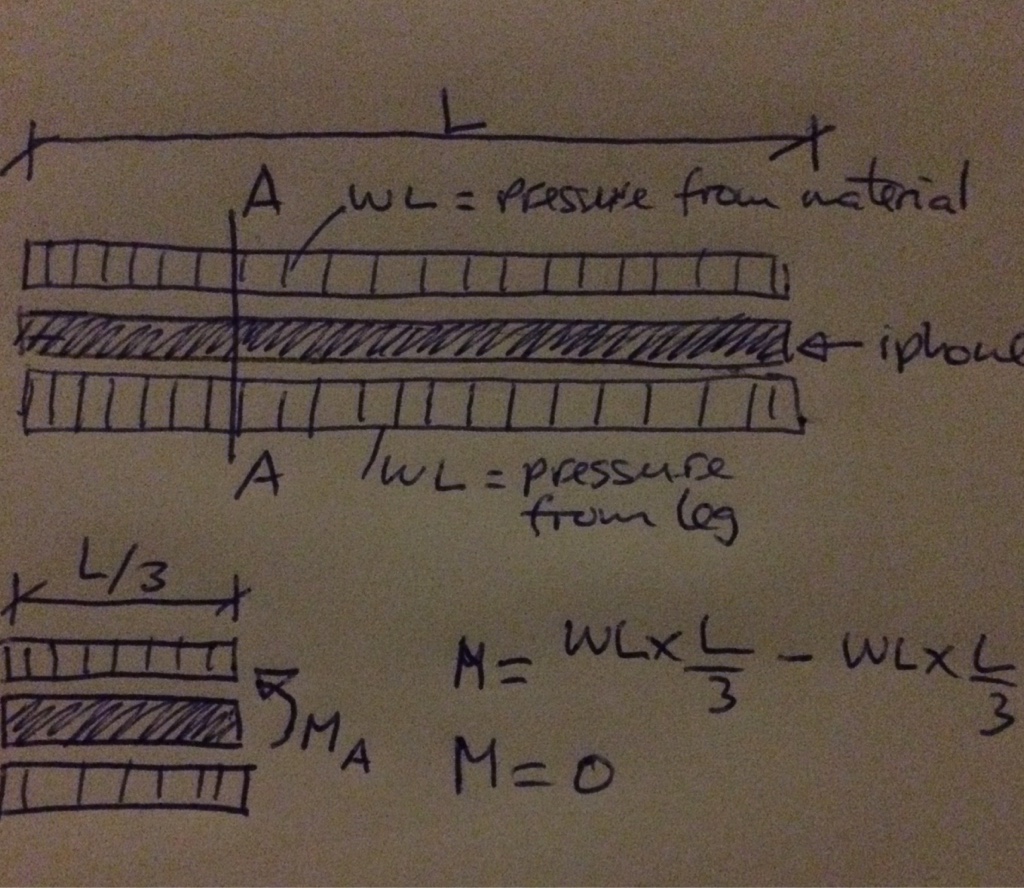 L
A
WL = pressure from material
← iphone
A
WL = pressure
from leg
L/3
M = WL x L/3 - WL x L/3
M_A
M = 0